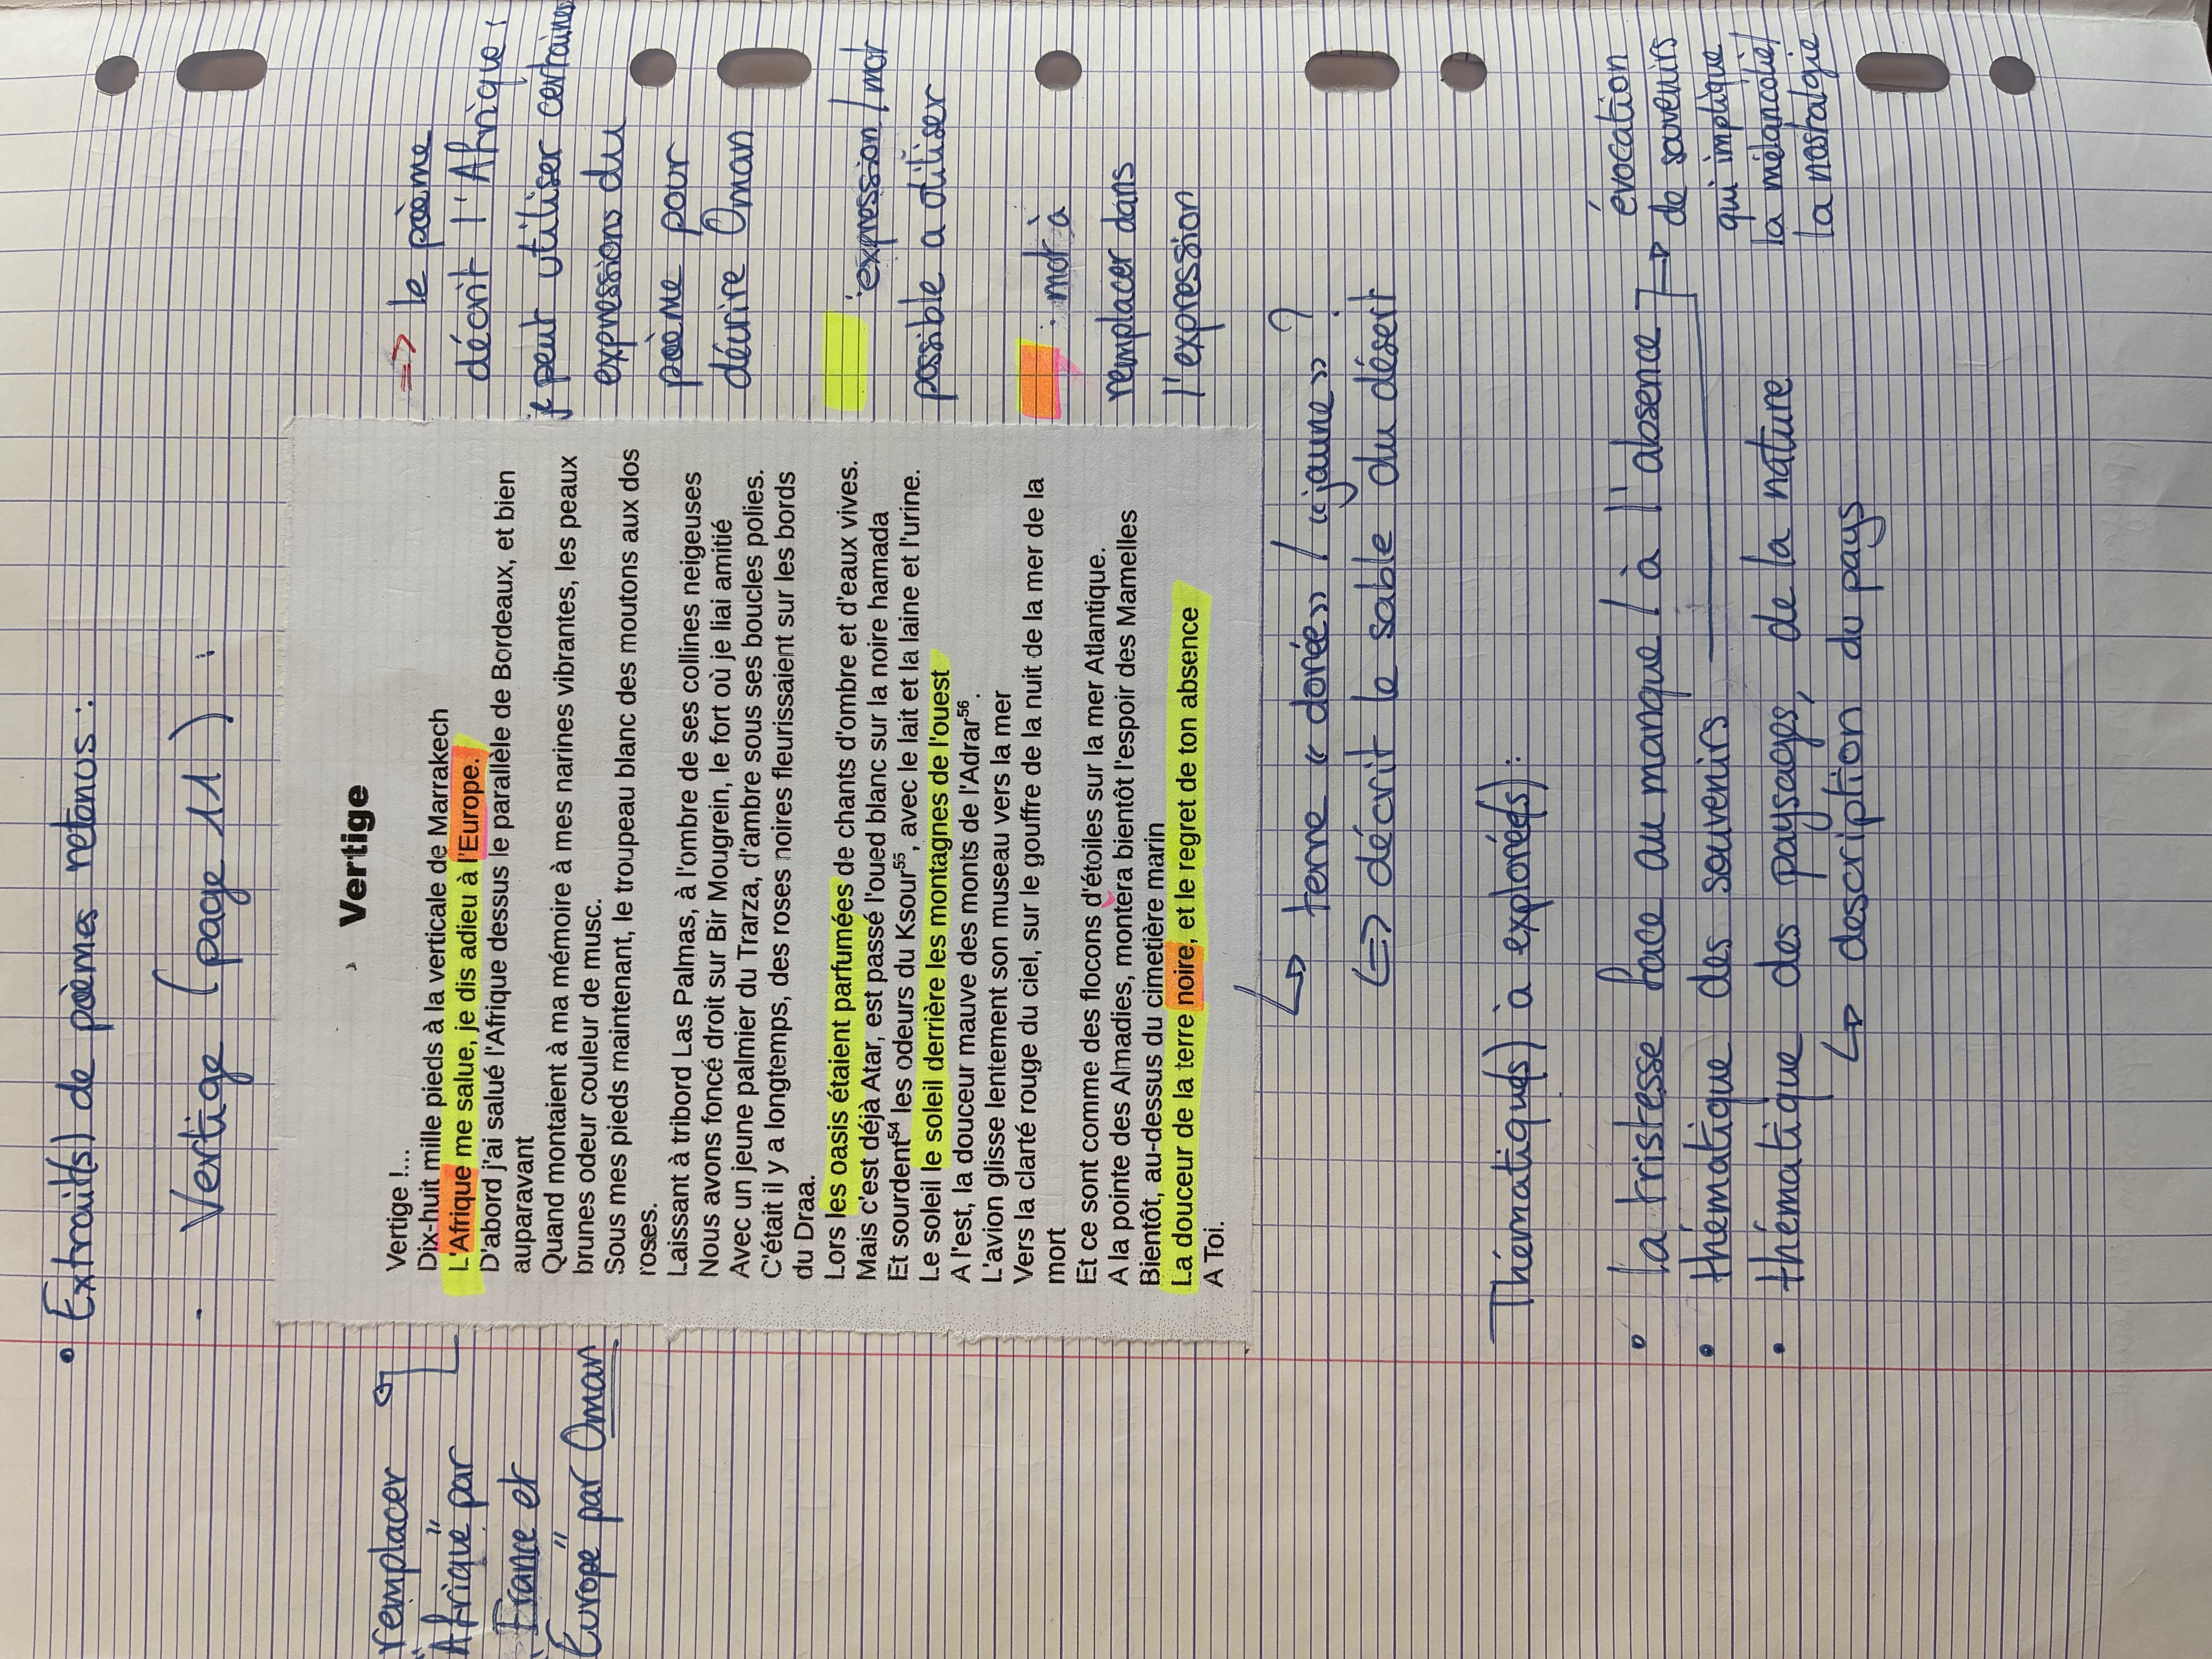 • Extrait(s) de poèmes retenus :
- Vertige (page 11) :
remplacer
"Afrique" par
"France et
Europe" par Oman
Vertige
Vertige !...
Dix-huit mille pieds à la verticale de Marrakech
L'Afrique me salue, je dis adieu à l'Europe.
D'abord j'ai salué l'Afrique dessus le parallèle de Bordeaux, et bien
auparavant
Quand montaient à ma mémoire à mes narines vibrantes, les peaux
brunes odeur couleur de musc.
Sous mes pieds maintenant, le troupeau blanc des moutons aux dos
roses.
Laissant à tribord Las Palmas, à l'ombre de ses collines neigeuses
Nous avons foncé droit sur Bir Mougrein, le fort où je liai amitié
Avec un jeune palmier du Trarza, d'ambre sous ses boucles polies.
C'était il y a longtemps, des roses noires fleurissaient sur les bords
du Draa.
Lors les oasis étaient parfumées de chants d'ombre et d'eaux vives.
Mais c'est déjà Atar, est passé l'oued blanc sur la noire hamada
Et sourdent54 les odeurs du Ksour55, avec le lait et la laine et l'urine.
Le soleil le soleil derrière les montagnes de l'ouest
A l'est, la douceur mauve des monts de l'Adrar56.
L'avion glisse lentement son museau vers la mer
Vers la clarté rouge du ciel, sur le gouffre de la nuit de la mer de la
mort
Et ce sont comme des flocons d'étoiles sur la mer Atlantique.
A la pointe des Almadies, montera bientôt l'espoir des Mamelles
Bientôt, au-dessus du cimetière marin
La douceur de la terre noire, et le regret de ton absence
A Toi.
=> le poème
décrit l'Afrique :
peut utiliser certaines
expressions du
poème pour
décrire Oman
: expression / mot
possible a utiliser
: mot à
remplacer dans
l'expression
↳ terre « dorée » / « jaune » ?
<=> décrit le sable du désert.
Thématique(s) à explorée(s) :
• la tristesse face au manque / à l'absence
• thématique des souvenirs
→ évocation
de souvenirs
qui implique
la mélancolie /
la nostalgie
• thématique des paysages, de la nature
↳ description du pays